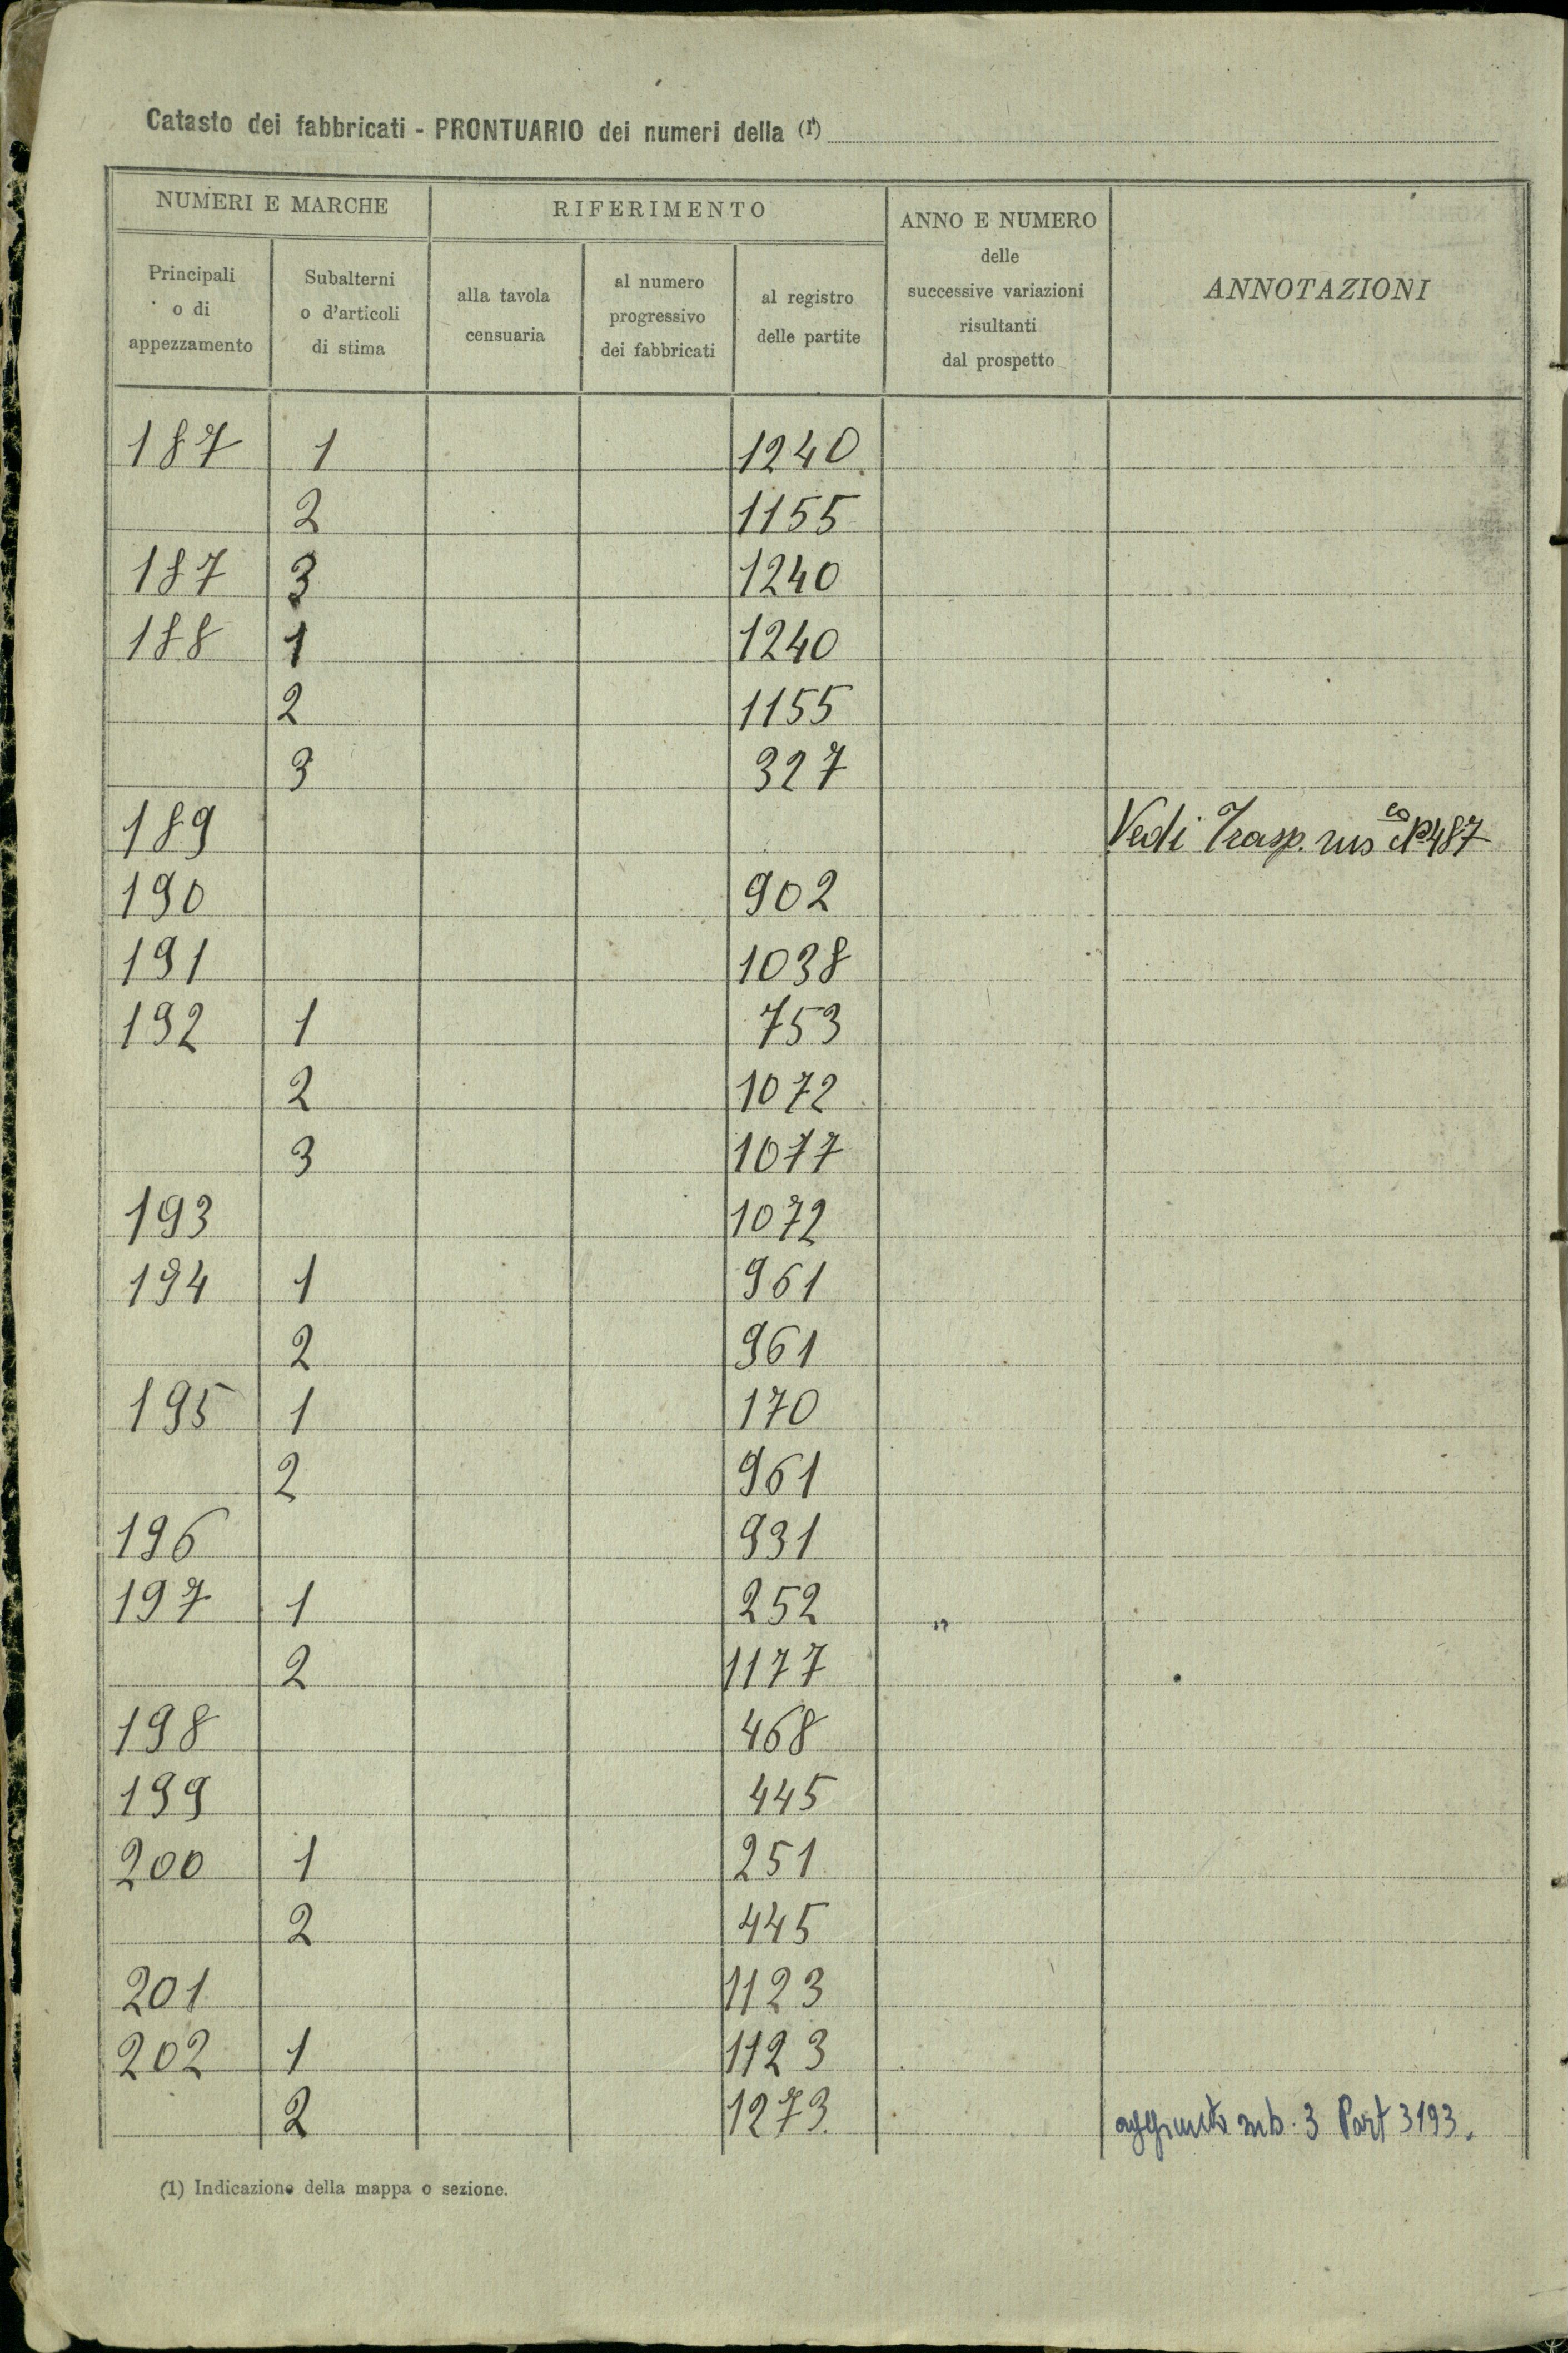 Catasto dei fabbricati - PRONTUARIO dei numeri della (1)
NUMERI E MARCHE
RIFERIMENTO
ANNO E NUMERO
delle
successive variazioni
risultanti
dal prospetto
ANNOTAZIONI
Principali
o di
appezzamento
Subalterni
o d'articoli
di stima
alla tavola
censuaria
al numero
progressivo
dei fabbricati
al registro
delle partite
187 1 1240
2 1155
187 3 1240
188 1 1240
2 1155
3 327
189 Vedi Trasp. rus co N° 487
190 902
191 1038
192 1 753
2 1072
3 1077
193 1072
194 1 961
2 961
195 1 170
2 961
196 931
197 1 252
2 1177
198 468
199 445
200 1 251
2 445
201 1123
202 1 1123
2 1273 aggiunto sub. 3 Part 3193.
(1) Indicazione della mappa o sezione.